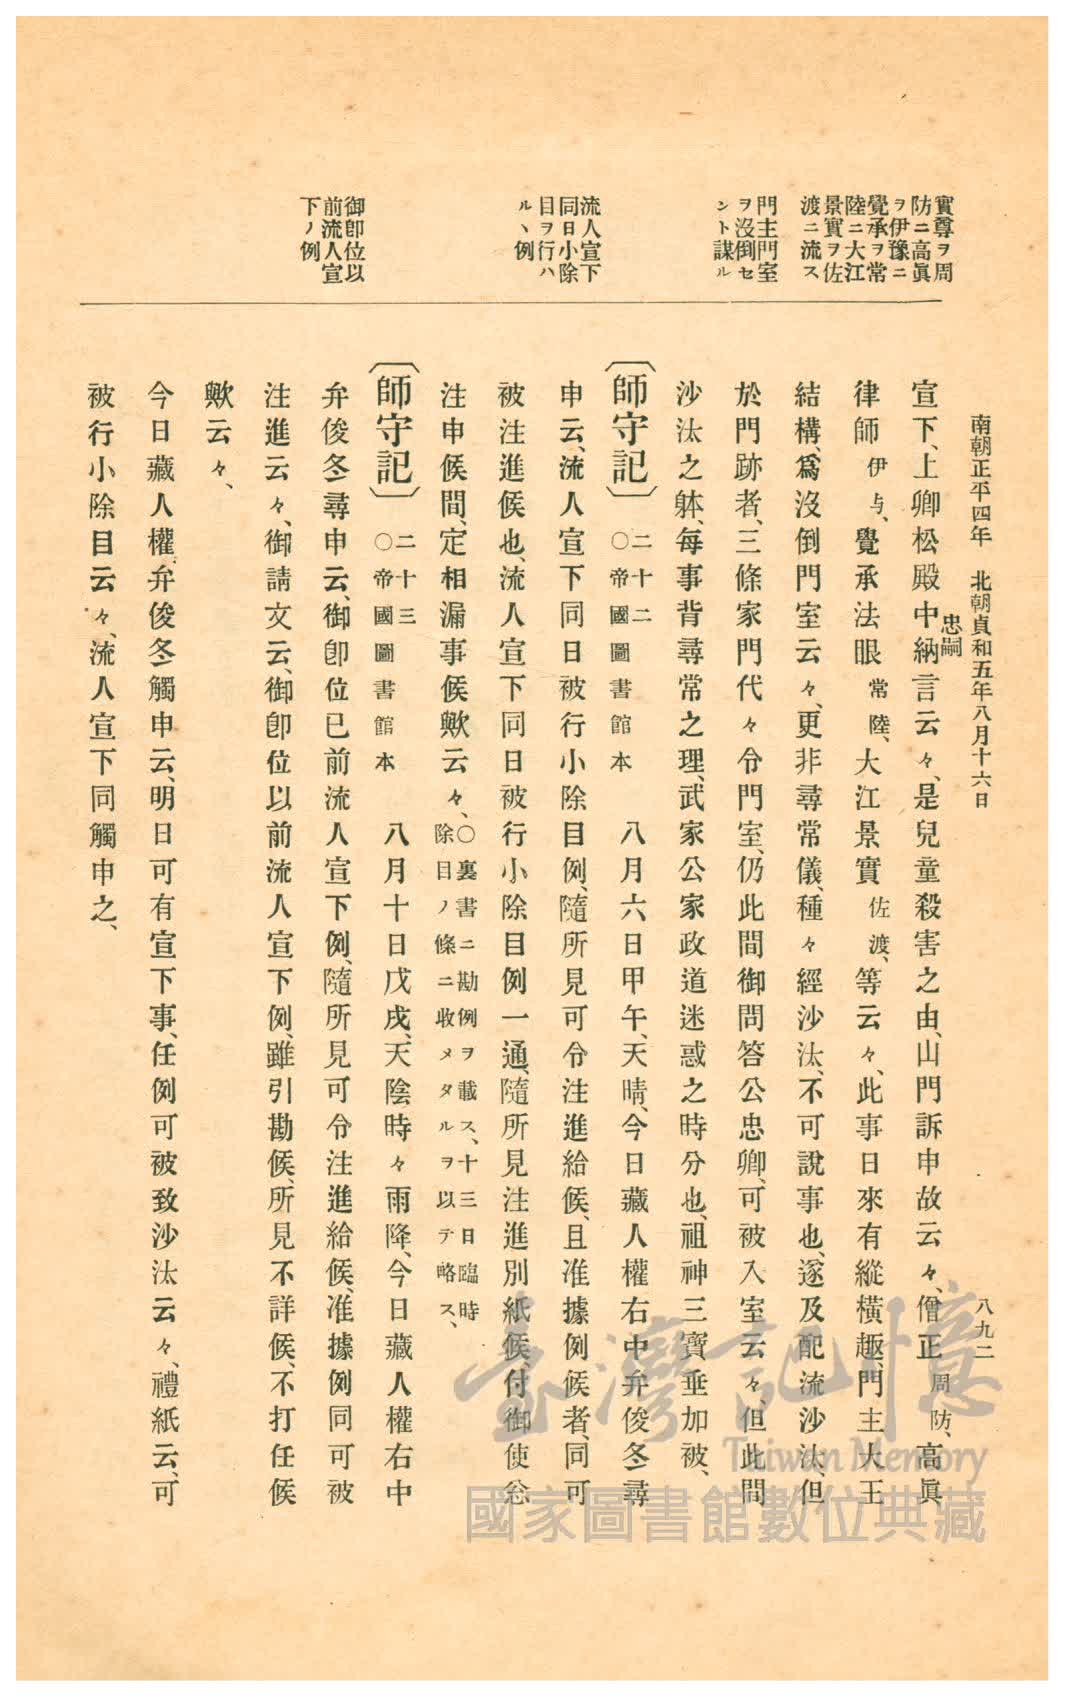 南朝正平四年 北朝貞和五年八月十六日
八九二
實尊ヲ周
防ニ高眞
ヲ伊豫ニ
覺承ヲ常
陸ニ大江
景實ヲ佐
渡ニ流ス
門主門室
ヲ沒倒セ
ント謀ル
流人宣下
同日小除
目ヲ行ハ
ルヽ例
御卽位以
前流人宣
下ノ例
忠嗣
宣下、上卿松殿中納言云々、是兒童殺害之由、山門訴申故云々、僧正周防、高眞
律師伊与、覺承法眼常陸、大江景實佐渡、等云々、此事日來有縱橫趣、門主大王
結構、爲沒倒門室云々、更非尋常儀、種々經沙汰、不可說事也、遂及配流沙汰、但
於門跡者、三條家門代々令門室、仍此間御問答公忠卿、可被入室云々、但此間
沙汰之躰、每事背尋常之理、武家公家政道迷惑之時分也、祖神三寶垂加被、
〔師守記〕 二十二 ○帝國圖書館本 八月六日甲午、天晴、今日藏人權右中弁俊冬尋
申云、流人宣下同日被行小除目例、隨所見可令注進給候、且准據例候者、同可
被注進候也、流人宣下同日被行小除目例一通、隨所見注進別紙候、付御使忩
注申候間、定相漏事候歟云々、○裏書ニ勘例ヲ載ス、十三日臨時
除目ノ條ニ收メタルヲ以テ略ス、
〔師守記〕 二十三 ○帝國圖書館本 八月十日戊戌、天陰時々雨降、今日藏人權右中
弁俊冬尋申云、御卽位已前流人宣下例、隨所見可令注進給候、准據例同可被
注進云々、御請文云、御卽位以前流人宣下例、雖引勘候、所見不詳候、不打任候
歟云々、
今日藏人權弁俊冬觸申云、明日可有宣下事、任例可被致沙汰云々、禮紙云、可
被行小除目云々、流人宣下同觸申之、
臺灣記憶
Taiwan Memory
國家圖書館數位典藏